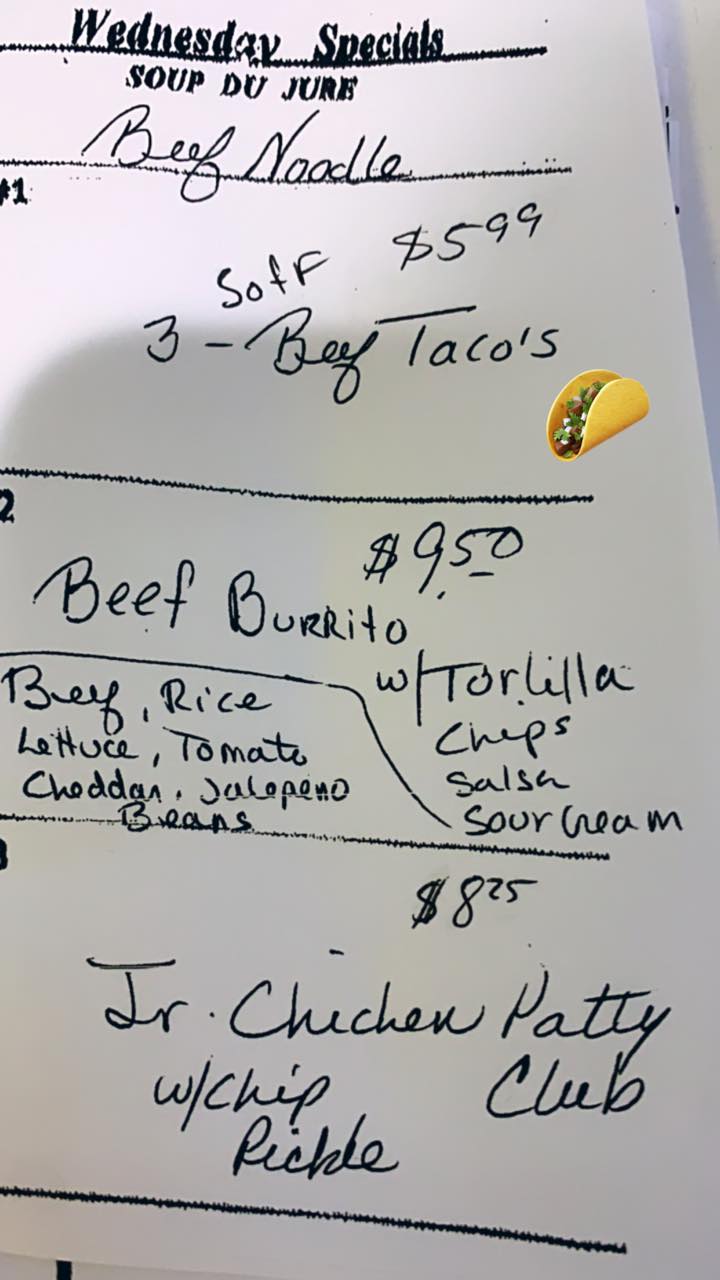 Wednesday Specials
SOUP DU JURE
Beef Noodle
#1
$5.99
Soft
3 - Beef Taco's
2
$9.50
Beef Burrito
w/Tortilla
Chips
Salsa
Sour Cream
Beef, Rice
Lettuce, Tomato
Cheddar, Jalapeno
Beans
3
$8.25
Jr. Chicken Patty
Club
w/Chip
Pickle